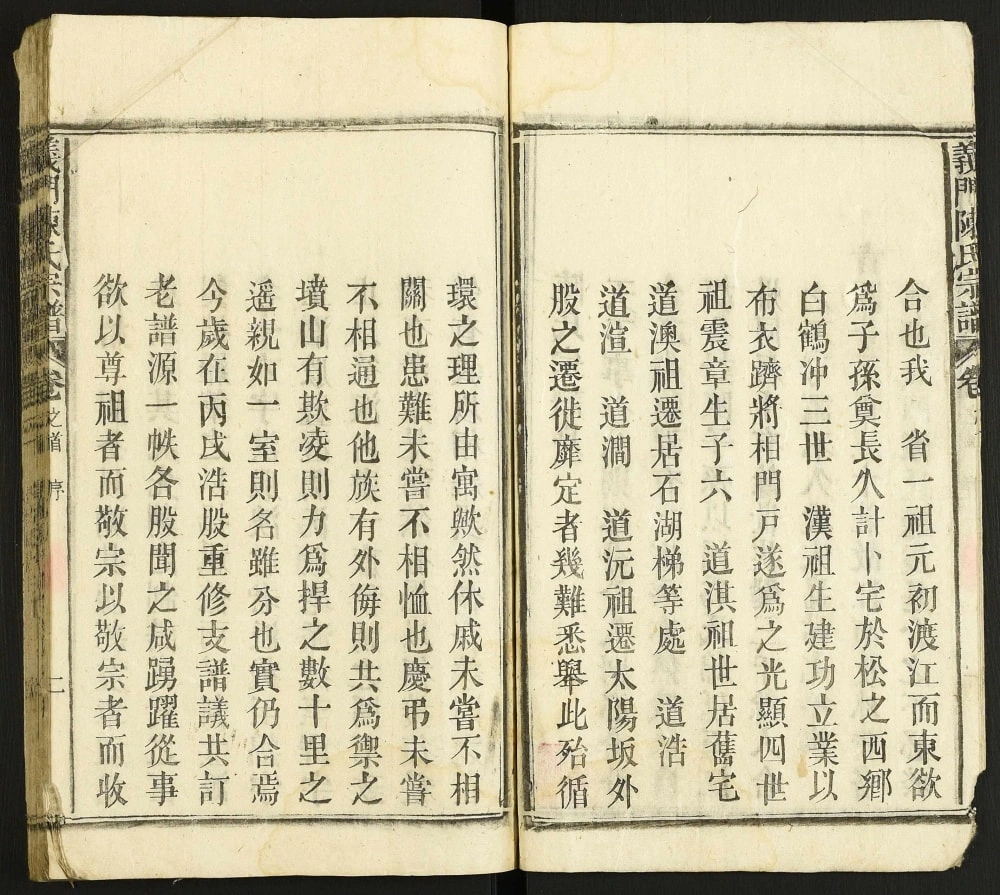 義門陳氏宗譜 卷
合也我　省一祖元初渡江而東欲
爲子孫奠長久計卜宅於松之西鄉
白鶴沖三世　漢祖生建功立業以
布衣躋將相門戶遂爲之光顯四世
祖震章生子六　道淇祖世居舊宅
道澳祖遷居石湖梯等處　道浩
道渲　道澗　道沅祖遷太陽坂外
股之遷徙靡定者幾難悉舉此殆循
環之理所由寓歟然休戚未嘗不相
關也患難未嘗不相恤也慶弔未嘗
不相通也他族有外侮則共爲禦之
墳山有欺凌則力爲捍之數十里之
遥親如一室則名雖分也實仍合焉
今歲在丙戌浩股重修支譜議共訂
老譜源一帙各股聞之咸踴躍從事
欲以尊祖者而敬宗以敬宗者而收
義門陳氏宗譜 卷之首 序 二